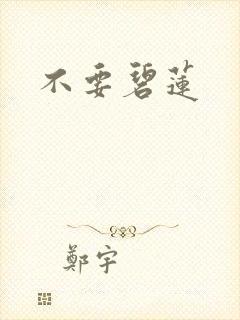 不要碧蓮
鄭宇